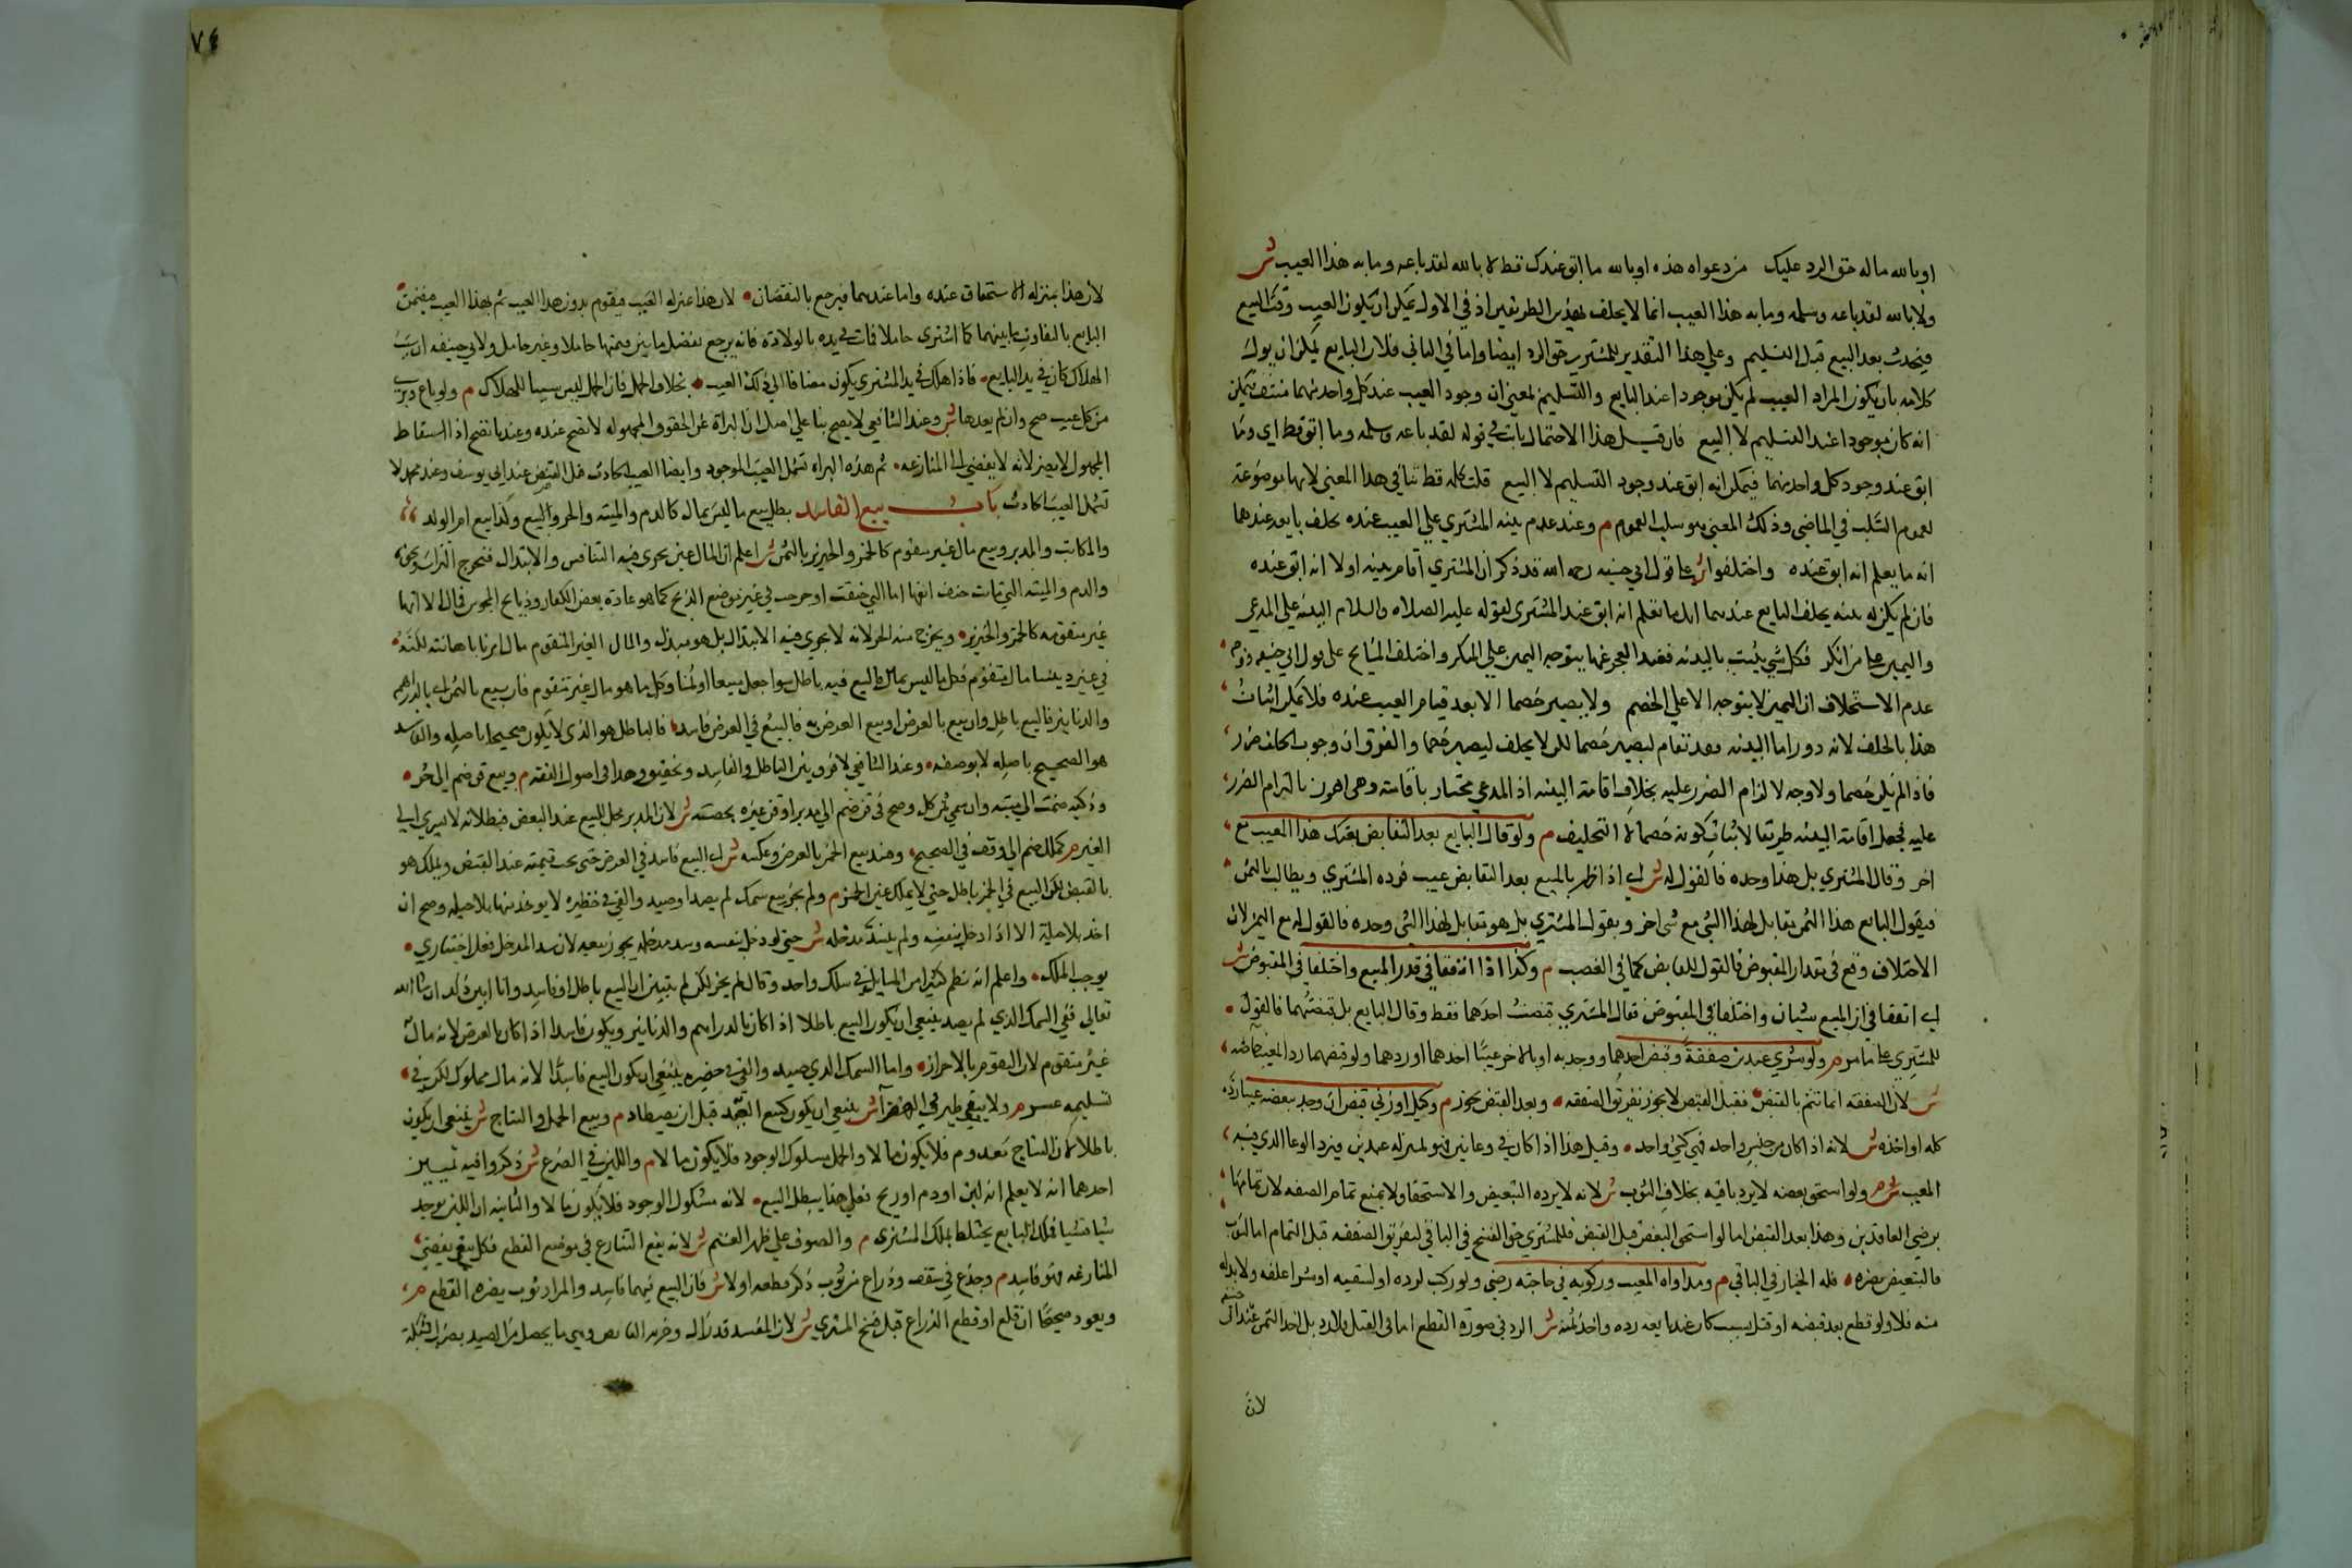 او بالله ماله حق الرد عليك من دعواه هذه او بالله ما ابق عندك قط لا بالله لقد باعه وما به هذا العيب ش
ولا بالله لقد باعه وسلمه وما به هذا العيب انما لا يحلف بهذين الطريقين اذ في الاول يمكن ان يكون العيب وقت البيع
فيحدث بعد البيع قبل التسليم وعلي هذا التقدير للمشتري حق الرد ايضا واما في الثاني فلان البايع يمكن ان يول
كلامه بان يكون المراد العيب لم يكن موجودا عند البايع والتسليم بمعني ان وجود العيب عند كل واحد منهما منتف فيمكن
انه كان موجودا عند التسليم لا البيع فان قيل هذا الاحتمال ثابت في قوله لقد باعه وسلمه وما ابق قط اي وما
ابق عند وجود كل واحد منهما فيمكن انه ابق عند وجود التسليم لا البيع قلت كلمة قط تنافي هذا المعني لانها موضوعة
لعموم السلب في الماضي وذلك المعني هو سلب العموم م وعند عدم بينة المشتري علي العيب عنده يحلف بايعه عندهما
انه ما يعلم انه ابق عنده واختلفوا ش علي قول ابي حنيفه رحمه الله قد ذكر ان المشتري اقام بينه اولا انه ابق عنده
فان لم يكن له بينه يحلف البايع عندهما انك ما تعلم انه ابق عند المشتري لقوله عليه الصلاه والسلام البينة علي المدعي
واليمين علي من انكر فكل شي يثبت بالبينه فعند العجز عنها يتوجه اليمين علي المنكر واختلف المشايخ علي قول ابي حنيفه
عدم الاستحلاف ان اليمين لا يتوجه الا علي الخصم ولا يصير خصما الا بعد قيام العيب عنده فلا يمكن اثبات
هذا بالحلف لانه دور اما البينه فقد تقام ليصير خصما لكن لا يحلف ليصير خصما والفرق ان وجوب الحلف ضرر
فاذا لم يكن خصما ولا وجه لالزام الضرر عليه بخلاف اقامة البينه اذ المدعي مختار باقامته وهي اهون بالتزام الضرر
عليه فجعل اقامة البينه طريقا لاثبات كونه خصما لا التحليف م ولو قال البايع بعد التقابض بعتك هذا المعيب مع
اخر وقال المشتري بل هذا وحده فالقول له ش اي اذا ظهر بالمبيع بعد التقابض عيب فرده المشتري ويطالب بالثمن
فيقول البايع هذا الثمن يقابل لهذا الشي مع شي اخر ويقول المشتري بل هو يقابل لهذا الشي وحده فالقول له مع اليمين لان
الاختلاف وقع في مقدار المقبوض فالقول للقابض كما في الغصب م وكذا اذا اتفقا في قدر المبيع واختلفا في المقبوض ش
اي اتفقا في ان المبيع شيئان واختلفا في المقبوض فقال المشتري قبضت احدهما فقط وقال البايع بل قبضتهما فالقول
للمشتري علي ما مر م ولو شري عبدين صفقة وقبض احدهما ووجد به او بالاخر عيبا اخذهما او ردهما ولو قبضهما رد المعيب خاصه
ش لان الصفقه انما تتم بالقبض فقبل القبض لا يجوز تفريق الصفقه وبعد القبض يجوز م وكيلي او وزني قبض ان وجد ببعضه عيبا رده
كله او اخذه ش لانه اذا كان من جنس واحد فهي كشئ واحد وقيل هذا اذا كان في وعا وان كان في وعاءين فهو بمنزله عبدين فيرد الوعا الذي فيه
المعيب ش م ولو استحق بعضه لا يرد باقيه بخلاف الثوب ش لانه لا يرده التبعيض والاستحقاق لا يمنع تمام الصفقه لان تمامها
برضي العاقدين وهذا بعد القبض اما لو استحق البعض قبل القبض فللمشتري حق الفسخ في الباقي لتفرق الصفقه قبل التمام اما الثوب
فالتبعيض يضره فله الخيار في الباقي م ومداواه المعيب وركوبه في حاجته رضي ولو ركب لرده او لسقيه او شرا علفه ولا بد له
منه فلا ولو قطع بعد قبضه او قتل بسبب كان عند بايعه رده واخذ ثمنه ش الرد في صورة القطع اما في القتل فلا رد بل اخذ الثمن عند ابي
حنيفه
لان
٧٤
لان هذا بمنزله الاستحقاق عنده واما عندهما فيرجع بالنقصان لان هذا بمنزله العيب فيقوم بدون هذا العيب ثم بهذا العيب فيضمن
البايع بالتفاوت ما بينهما كما اشتري حاملا فماتت في يده بالولادة فانه يرجع بفضل ما بين قيمتها حاملا وغير حامل ولابي حنيفه ان سبب
الهلاك كان في يد البايع فاذا هلك في يد المشتري يكون مضافا الي ذلك العيب بخلاف الحمل فان الحمل ليس سببا للهلاك م ولو باع وبري
من كل عيب صح وان لم يعدها ش وعند الشافعي لا يصح بنا علي اصله ان البراة عن الحقوق المجهوله لا تصح عنده وعندنا تصح اذ اسقاط
المجهول لا يضر لانه لا يفضي الي المنازعه ثم هذه البراه تشمل العيب الموجود وايضا العيب الحادث قبل القبض عند ابي يوسف وعند محمد لا
تشمل العيب الحادث باب بيع الفاسد بطل بيع ما ليس بمال كالدم والميته والحر والبيع به وكذا بيع ام الولد
والمكاتب والمدبر وبيع مال غير متقوم كالخمر والخنزير بالثمن ش اعلم ان المال عين يجري فيه التنافس والابتذال فيخرج التراب ونحوه
والدم والميته التي ماتت حتف انفها اما التي خنقت او جرحت في غير موضع الذبح كما هو عادة بعض الكفار وذبايح المجوس فمال الا انها
غير متقومه كالخمر والخنزير ويخرج منه الحر لانه لا يجري فيه الابتذال بل هو مبتذل والمال الغير المتقوم مال امرنا باهانته لكنه
في غير ديننا مال متقوم فكل ما ليس بمال فالبيع فيه باطل سوا جعل مبيعا او ثمنا وكل ما هو مال غير متقوم فان بيع بالثمن اي بالدراهم
والدنانير فالبيع باطل وان بيع بالعرض او بيع العرض به فالبيع في العرض فاسد فالباطل هو الذي لا يكون صحيحا باصله والفاسد
هو الصحيح باصله لا بوصفه وعند الشافعي لا فرق بين الباطل والفاسد وتحقيق هذا في اصول الفقه م وبيع قن ضم الي حر
وذكيه ضمت الي ميته وان سمي ثمن كل وصح في قن ضم الي مدبر او قن غيره بحصته ش لان المدبر محل للبيع عند البعض فبطلانه لا يسري الي
الغير م كملك ضم الي وقف في الصحيح وفسد بيع الخمر بالعرض وعكسه ش اي البيع فاسد في العرض حتي يجب قيمته عند القبض ويملك هو
بالقبض لكن البيع في الخمر باطل حتي لا يملك عين الخمر م ولم يجز بيع سمك لم يصد او صيد والقي في حظيره لا يؤخذ منها بلا حيله وصح ان
اخذ بلا حيلة الا اذا دخل بنفسه ولم يسد مدخله ش حتي لو دخل بنفسه وسد مدخله يجوز بيعه لان سد المدخل فعل اختياري
يوجب الملك واعلم انه نظم كثيرا من المسايل في سلك واحد وقال لم يجز لكن لم يتبين ان البيع باطل او فاسد وانا ابين ذلك ان شا الله
تعالي ففي السمك الذي لم يصد ينبغي ان يكون البيع باطلا اذا كان بالدراهم والدنانير ويكون فاسدا اذا كان بالعرض لانه مال
غير متقوم لان التقوم بالاحراز واما السمك الذي صيد والقي في حضيره ينبغي ان يكون البيع فاسدا لانه مال مملوك لكن في
تسليمه عسر م ولا بيع طير في الهوا ش ينبغي ان يكون كبيع السمك قبل ان يصطاد م وبيع الحمل والنتاج ش ينبغي ان يكون
باطلا لان النتاج معدوم فلا يكون مالا والحمل مشكوك الوجود فلا يكون مالا م واللبن في الضرع ش ذكروا فيه علتين
احدهما انه لا يعلم انه لبن او دم او ريح فعلي هذا يبطل البيع لانه مشكوك الوجود فلا يكون مالا والثانيه ان اللبن يوجد
شيا فشيا فملك البايع يختلط بملك المشتري م والصوف علي ظهر الغنم ش لانه يقع التنازع في موضع القطع فكل بيع يفضي
المنازعه فهو فاسد م وجذع في سقف وذراع من ثوب ذكر قطعه اولا ش فان البيع فيهما فاسد والمراد ثوب يضره القطع م
ويعود صحيحا ان قلع او قطع الذراع قبل فسخ المشتري ش لان المفسد قد زال وضربه القانص وهي ما يحصل من الصيد بضرب الشبكة